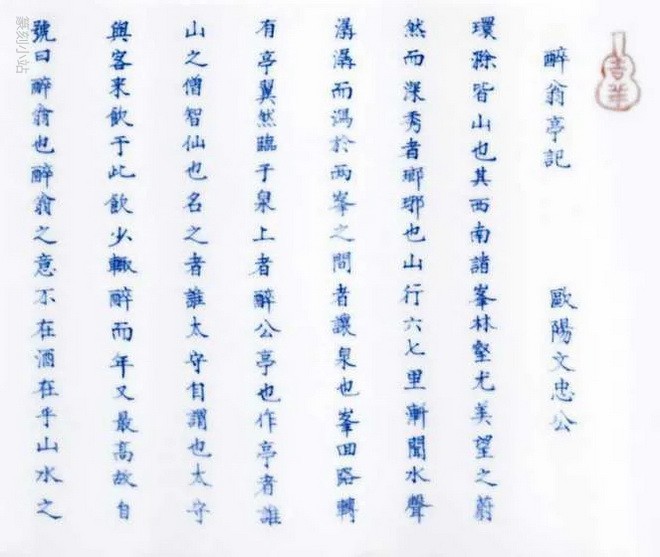 吉羊
醉翁亭記 歐陽文忠公
環滁皆山也其西南諸峯林壑尤美望之蔚
然而深秀者瑯琊也山行六七里漸聞水聲
潺潺而瀉於兩峯之間者讓泉也峯囬路轉
有亭翼然臨于泉上者醉公亭也作亭者誰
山之僧智仙也名之者誰太守自謂也太守
與客来飲于此飲少輒醉而年又最高故自
號曰醉翁也醉翁之意不在酒在乎山水之
篆刻小站